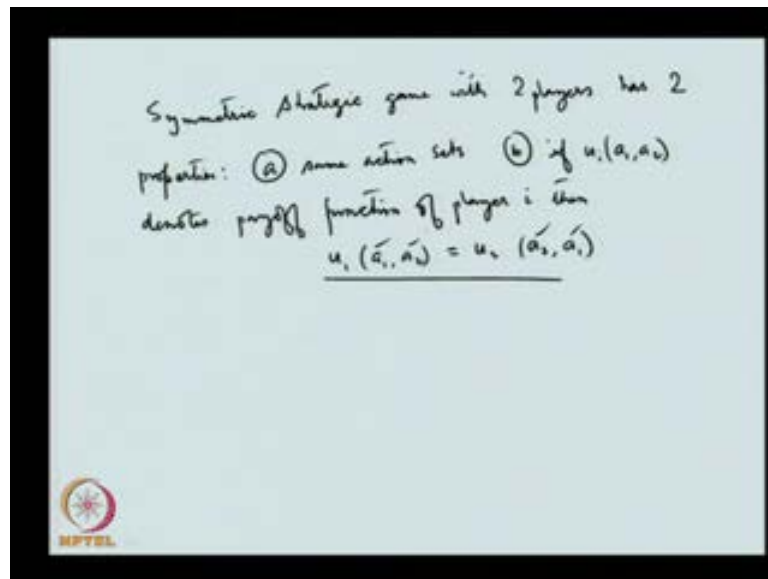 Symmetric strategic game with 2 players has 2
properties: (a) same action sets (b) if uᵢ(a₁, a₂)
denotes payoff function of player i then
u₁ (a₁', a₂') = u₂ (a₂', a₁')
NPTEL